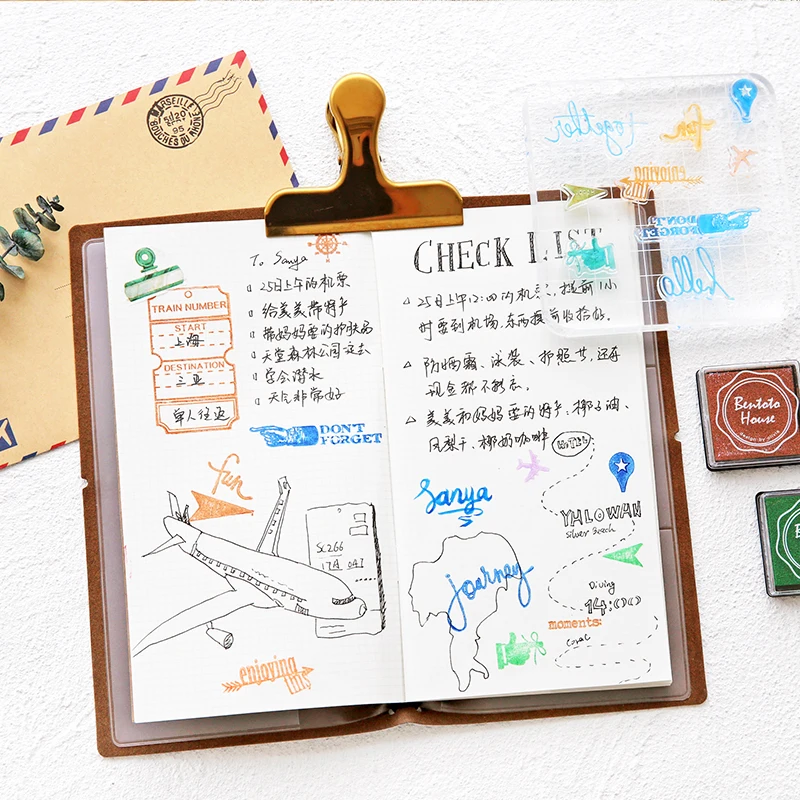 MARSEILLE
20
95
BOUCHES DU RHÔNE
To Sanya
25日上午的机票
给美美带特产
带妈妈要的护肤品
天堂森林公园一定去
学会潜水
天气非常好
TRAIN NUMBER
START
上海
DESTINATION
三亚
单人往返
DON'T
FORGET
fun
SC266
17A
enjoying
this
CHECK LIST
25日上午12:00的机票,提前1小
时要到机场,东西提前收拾好。
防晒霜、泳装、护照
现金都不能忘。
美美和妈妈要的特产、椰子油、
凤梨干、椰奶咖啡
HOTEL
Sanya
YHLOWAN
Silver Beach
journey
Diving
14:00
moments:
together
fun
enjoying
this
DON'T
FORGET
hello
Bentoto
House
design by photo